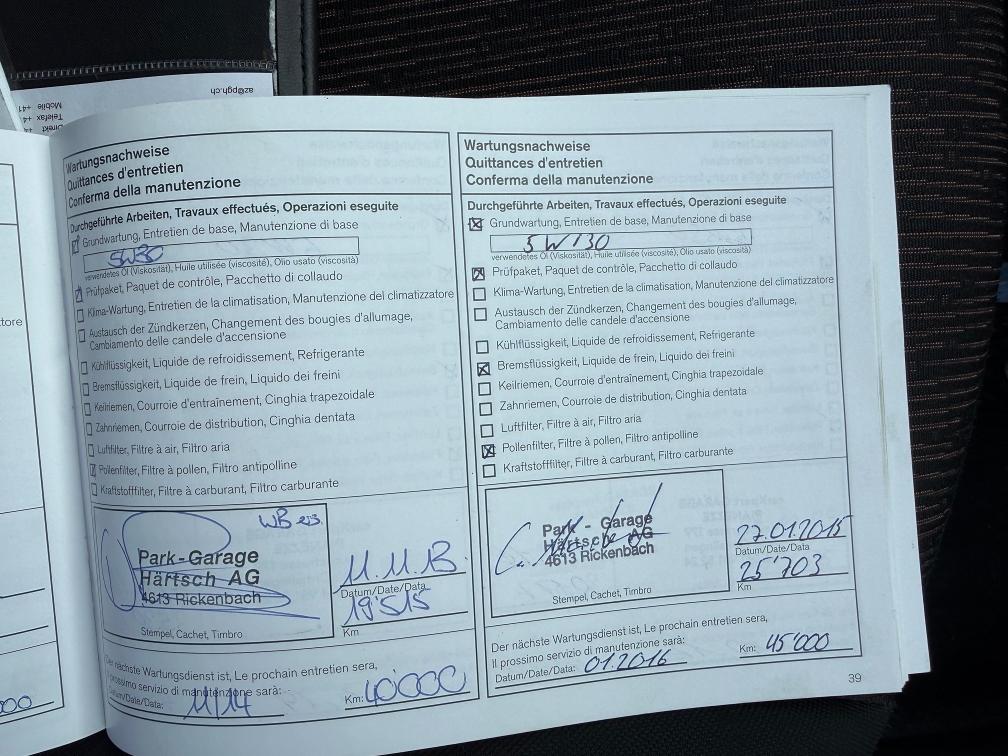 az@pgh.ch
Mobile +41
Telefax +4
Direkt +4
tore
000
Wartungsnachweise
Quittances d'entretien
Conferma della manutenzione
Durchgeführte Arbeiten, Travaux effectués, Operazioni eseguite
Grundwartung, Entretien de base, Manutenzione di base
5W30
verwendetes Öl (Viskosität), Huile utilisée (viscosité), Olio usato (viscosità)
Prüfpaket, Paquet de contrôle, Pacchetto di collaudo
Klima-Wartung, Entretien de la climatisation, Manutenzione del climatizzatore
Austausch der Zündkerzen, Changement des bougies d'allumage,
Cambiamento delle candele d'accensione
Kühlflüssigkeit, Liquide de refroidissement, Refrigerante
Bremsflüssigkeit, Liquide de frein, Liquido dei freini
Keilriemen, Courroie d'entraînement, Cinghia trapezoidale
Zahnriemen, Courroie de distribution, Cinghia dentata
Luftfilter, Filtre à air, Filtro aria
Pollenfilter, Filtre à pollen, Filtro antipolline
Kraftstofffilter, Filtre à carburant, Filtro carburante
Park-Garage
Härtsch AG
4613 Rickenbach
Stempel, Cachet, Timbro
11.11.13
Datum/Date/Data
19'515
Km
Der nächste Wartungsdienst ist, Le prochain entretien sera,
Il prossimo servizio di manutenzione sarà:
Datum/Date/Data: 11/14
Km: 40'000
Wartungsnachweise
Quittances d'entretien
Conferma della manutenzione
Durchgeführte Arbeiten, Travaux effectués, Operazioni eseguite
Grundwartung, Entretien de base, Manutenzione di base
5W'30
verwendetes Öl (Viskosität), Huile utilisée (viscosité), Olio usato (viscosità)
Prüfpaket, Paquet de contrôle, Pacchetto di collaudo
Klima-Wartung, Entretien de la climatisation, Manutenzione del climatizzatore
Austausch der Zündkerzen, Changement des bougies d'allumage,
Cambiamento delle candele d'accensione
Kühlflüssigkeit, Liquide de refroidissement, Refrigerante
Bremsflüssigkeit, Liquide de frein, Liquido dei freini
Keilriemen, Courroie d'entraînement, Cinghia trapezoidale
Zahnriemen, Courroie de distribution, Cinghia dentata
Luftfilter, Filtre à air, Filtro aria
Pollenfilter, Filtre à pollen, Filtro antipolline
Kraftstofffilter, Filtre à carburant, Filtro carburante
Park - Garage
Härtsche AG
4613 Rickenbach
Stempel, Cachet, Timbro
27.01.2015
Datum/Date/Data
25'703
Km
Der nächste Wartungsdienst ist, Le prochain entretien sera,
Il prossimo servizio di manutenzione sarà:
Datum/Date/Data: 01.2016
Km: 45'000
39